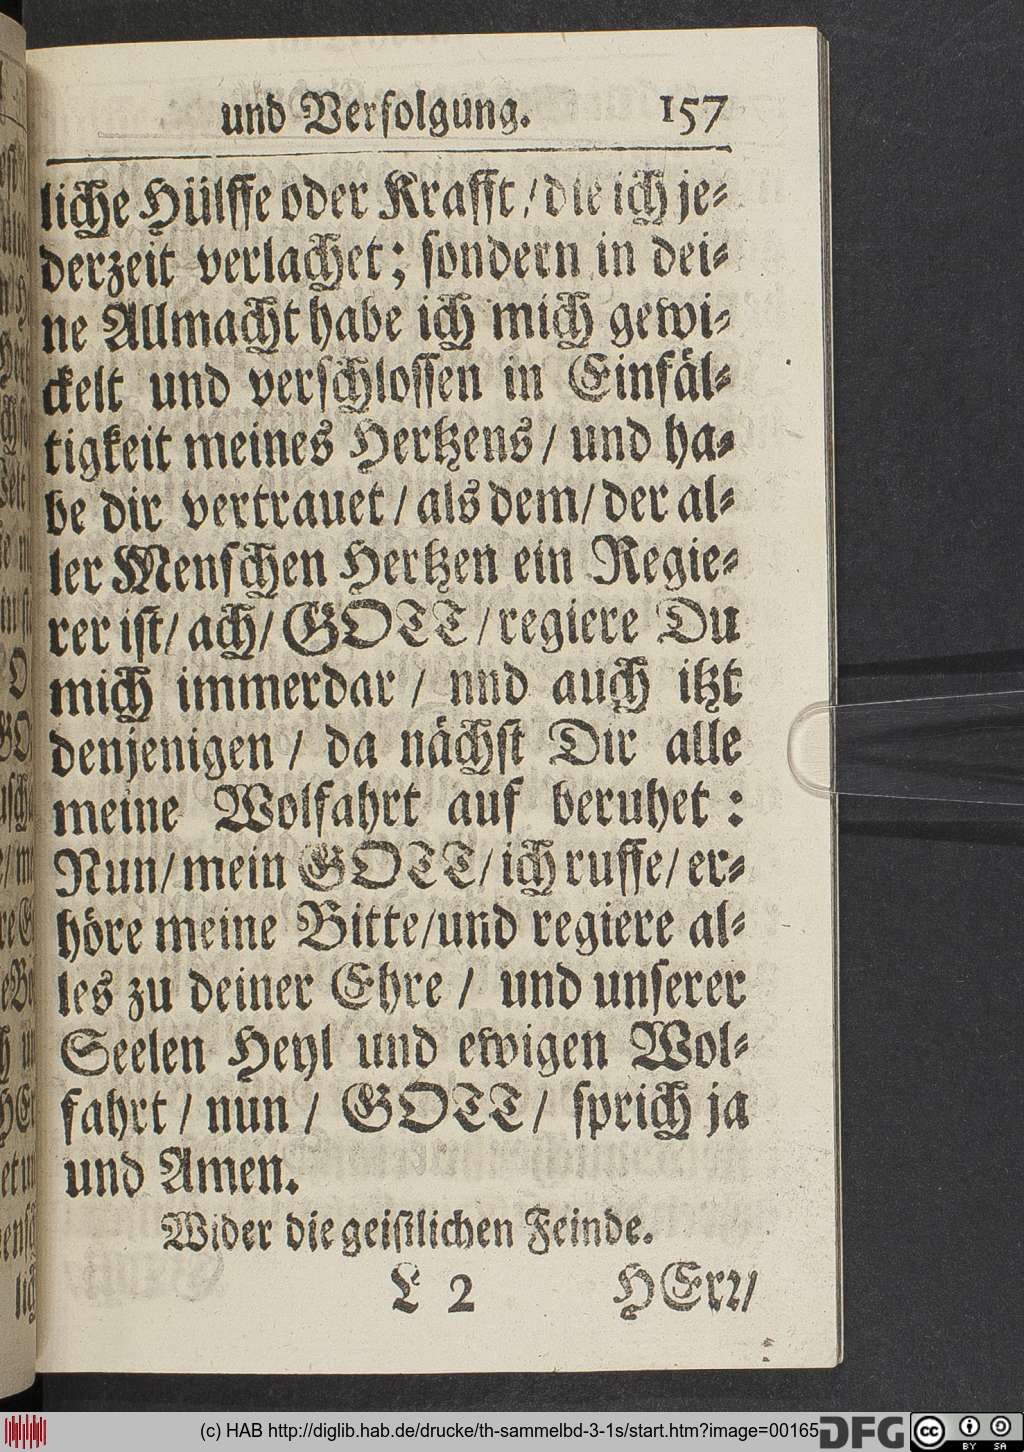 und Verfolgung. 157
liche Hülffe oder Krafft / die ich je⸗
derzeit verlachet; sondern in dei⸗
ne Allmacht habe ich mich gewi⸗
ckelt und verschlossen in Einfäl⸗
tigkeit meines Hertzens / und ha⸗
be dir vertrauet / als dem / der al⸗
ler Menschen Hertzen ein Regie⸗
rer ist / ach / GOTT / regiere Du
mich immerdar / nnd auch itzt
denjenigen / da nächst Dir alle
meine Wolfahrt auf beruhet :
Nun / mein GOTT / ich ruffe / er⸗
höre meine Bitte / und regiere al⸗
les zu deiner Ehre / und unserer
Seelen Heyl und ewigen Wol⸗
fahrt / nun / GOTT / sprich ja
und Amen.
Wider die geistlichen Feinde.
L 2 HErr /
(c) HAB http://diglib.hab.de/drucke/th-sammelbd-3-1s/start.htm?image=00165
DFG cc BY SA